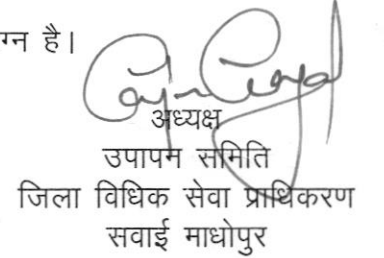 ग्न है।
अध्यक्ष
उपापन समिति
जिला विधिक सेवा प्राधिकरण
सवाई माधोपुर